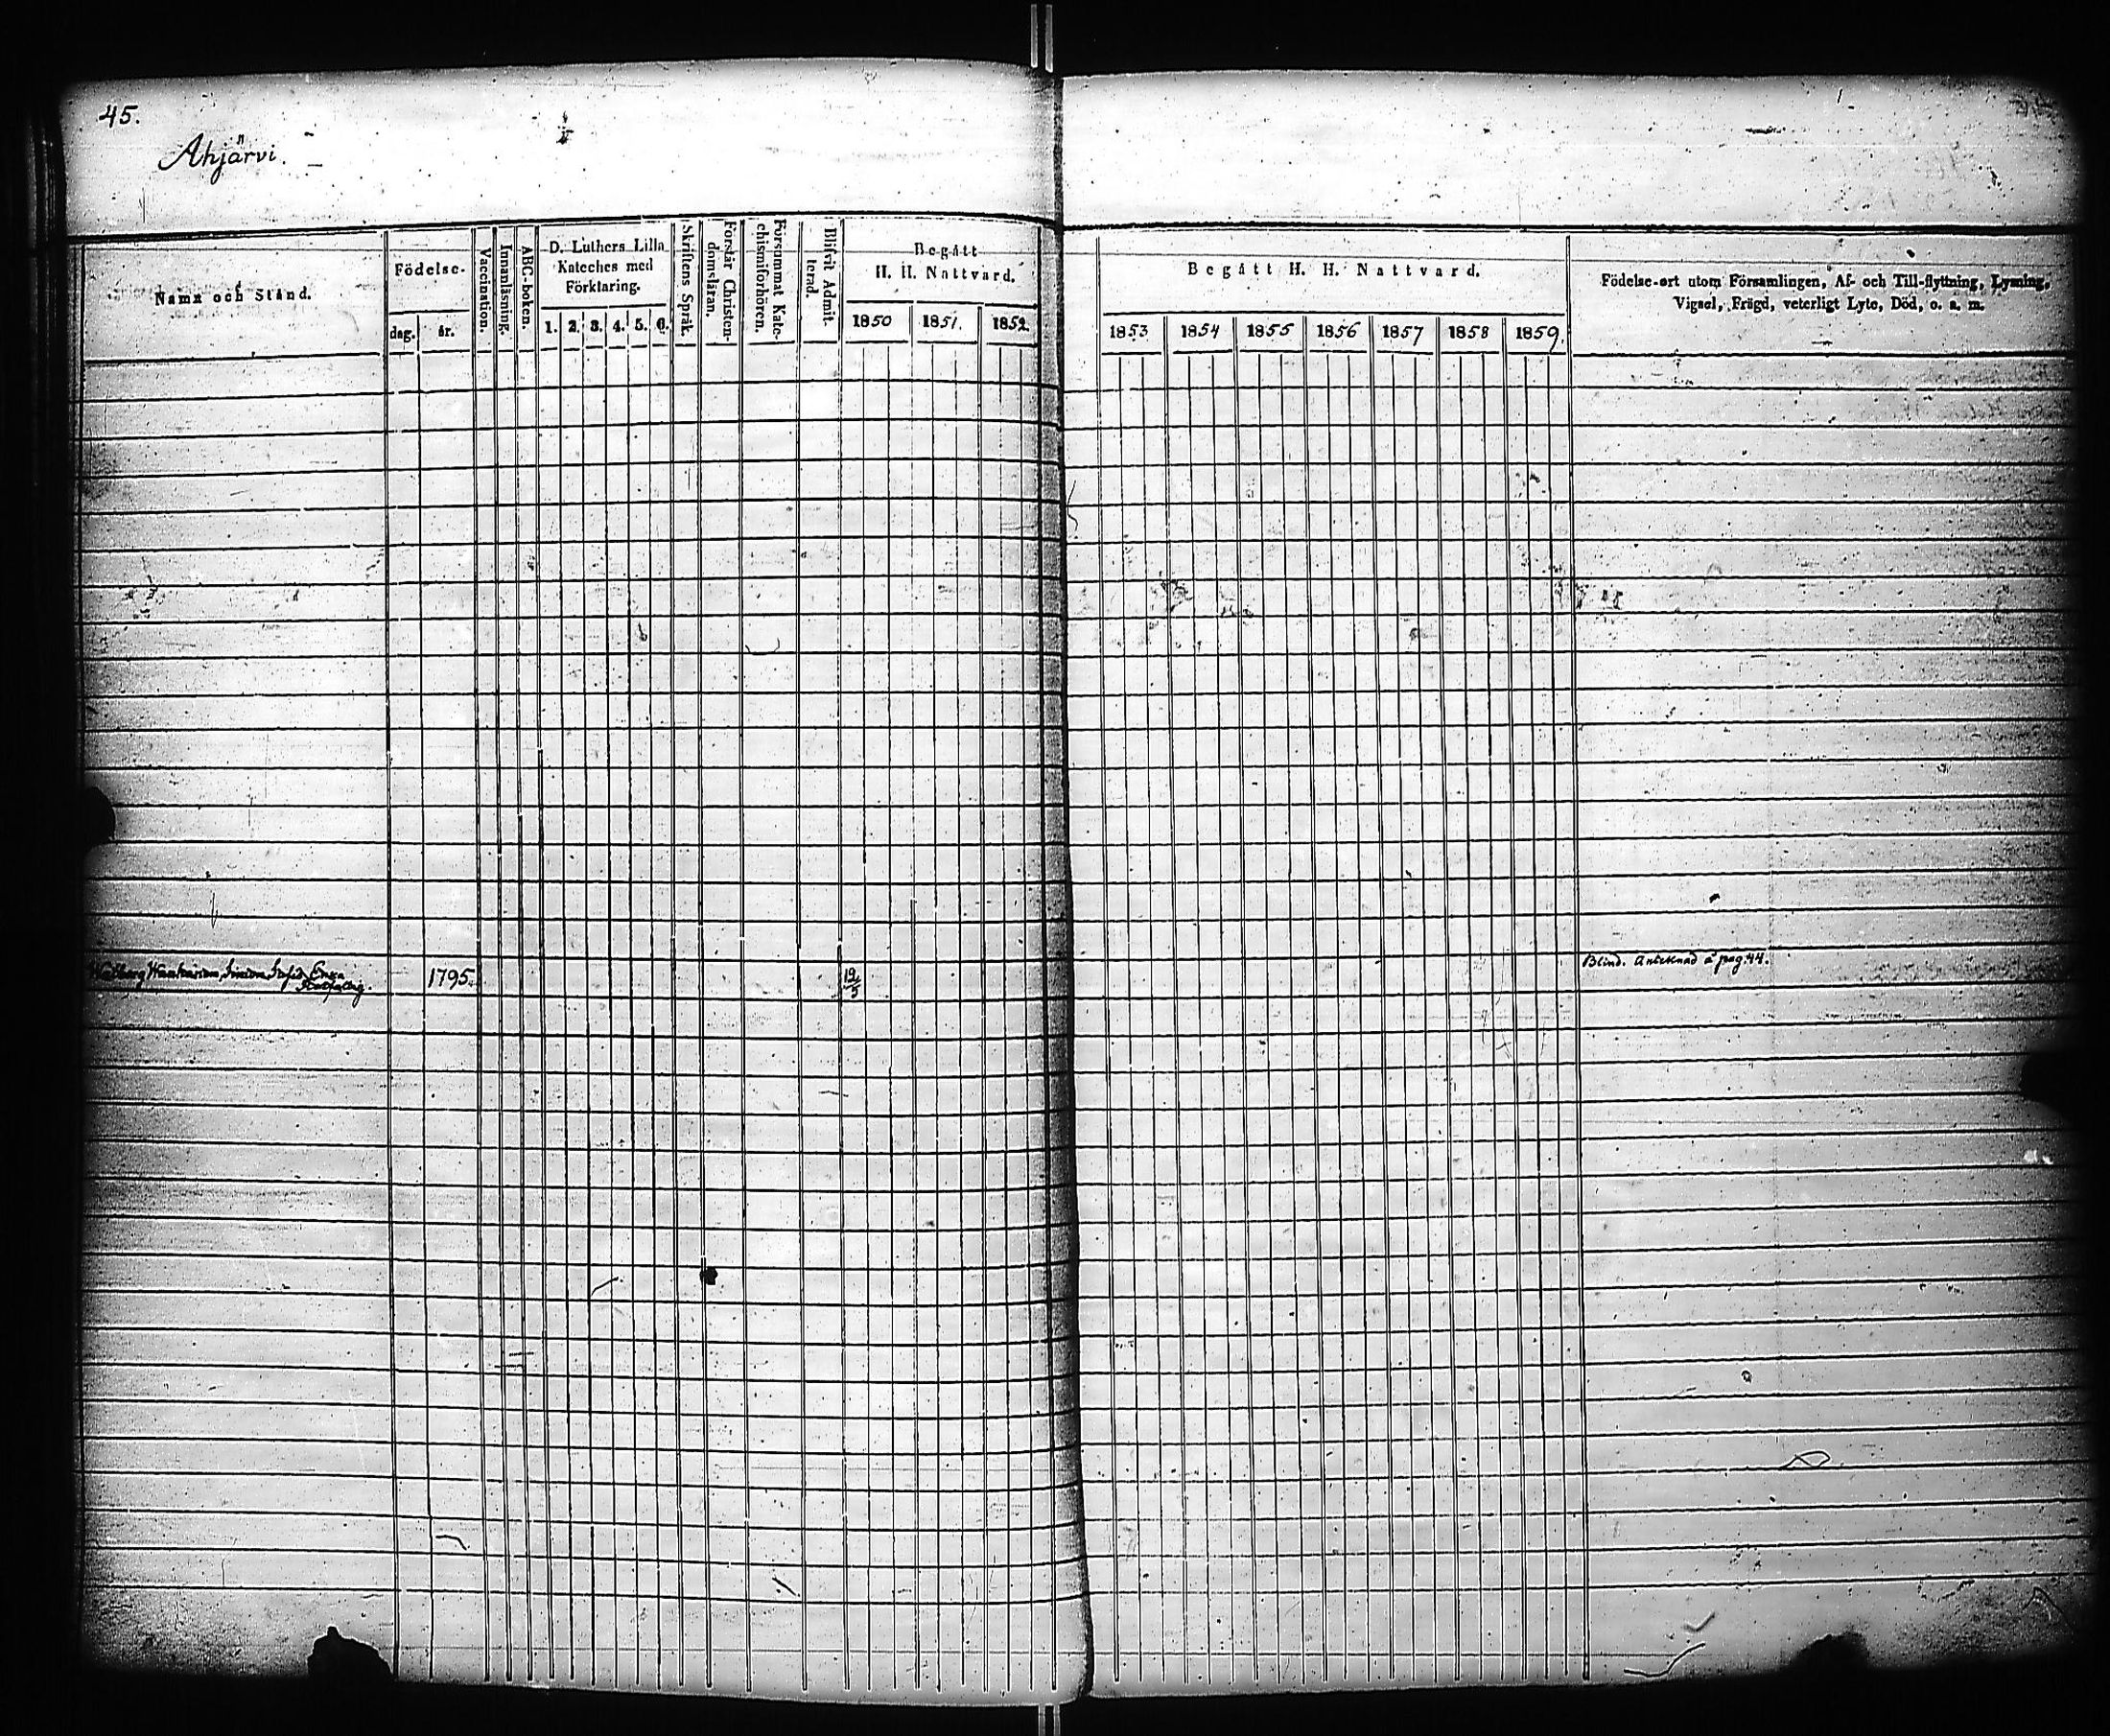 45.
Ahjärvi.
Namn och Stånd.
Födelse-
dag.
år.
Vaccination.
Innanläsning.
ABC-boken.
D. Luthers Lilla
Kateches med
Förklaring.
1. 2. 3. 4. 5. 6.
Skriftens Språk.
Förstår Christen-
domsläran.
Försummat Kate-
chismiförhören.
Blifvit Admit-
terad.
Begått
H. H. Nattvard.
1850 1851. 1852.
Begått H. H. Nattvard.
1853 1854 1855 1856 1857 1858 1859.
Födelse-ort utom Församlingen, Af- och Till-flyttning, Lysning,
Vigsel, Frägd, veterligt Lyte, Död, o. s. m.
Walborg Simons Enka
1795.
19/5
Blind. Antecknad å pag. 44.